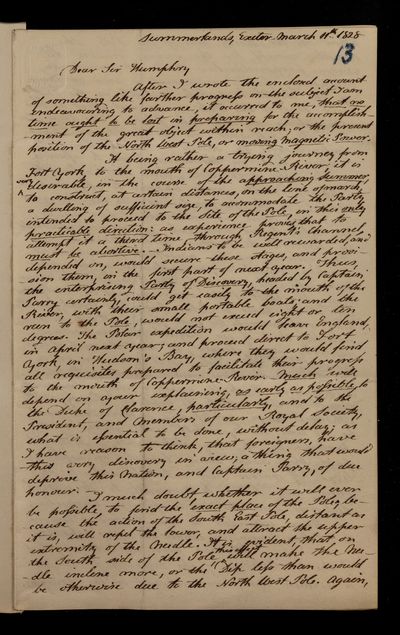 Summerlands, Exeter March 11th 1828
13
Dear Sir Humphry
After I wrote the enclosed account
of something like further progress on the subject I am
endeavouring to advance, it occurred to me, that no
time ought to be lost in preparing for the accomplish-
ment of the great object within reach; or the present
position of the North West Pole, or moving Magnetic Power.
It being rather a trying journey from
Fort York to the mouth of Coppermine River; it is
very
desirable, in the course of the approaching Summer,
to construct, at certain distances, on the line of march,
a dwelling of sufficient size, to accommodate the Party
intended to proceed to the Site of the Pole, in this only
practicable direction: as experience proves that to
attempt it a third time, through Regent's Channel,
must be abortive. Indians to be well rewarded, and
depended on, would secure these Stages, and provi-
sion them, in the first part of next year. Thus,
the enterprising Party of Discovery, headed by Captain
Parry certainly, could get easily to the mouth of the
River, with their small portable boats; and the
run to the Pole, would not exceed eight or ten
degrees. The Polar expedition would leave England,
in April next year; and proceed direct to Fort
York, in Hudson's Bay, where they would find
all requisites prepared to facilitate their progress
to the mouth of Coppermine River. Much will
depend on your explaining, as early as possible, to
the Duke of Clarence, particularly, and to the
President, and Members of our Royal Society,
what is essential to be done, without delay; as
I have reason to think, that foreigners, have
this very discovery in view; a thing that would
deprive this Nation, and Captain Parry, of due
honour. I much doubt whether it will ever
be possible to find the exact place of the Pole; be-
cause the action of the South East Pole, distant as
it is, will repel the lower, and attract the upper
extremity of the Needle. It is evident, that, on
the South side of the Pole this effect will make the Nee-
dle incline more, or the Dip less than would
be otherwise due to the North West Pole. Again,